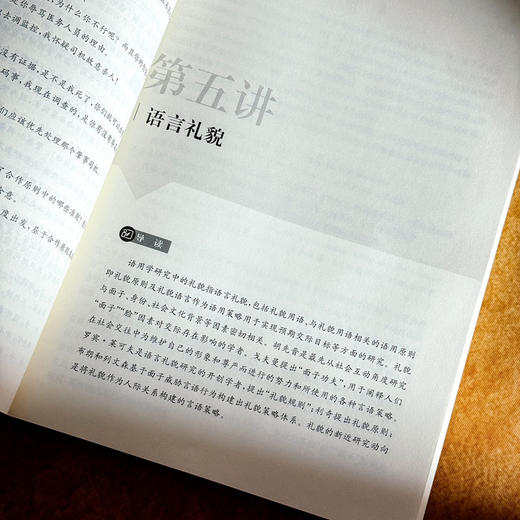 为什么你不行呢？而且你
是你辱骂医务人员的理由。
去调监控，我怀疑司机故意杀人！
没有证据，是不是我死了，
码事，我现在调查的，是你有没有
们应该优先处理那个肇事司机。
合作原则中的哪些准则？
含意。
度出发，基于合作原则
第五讲
语言礼貌
导 读
语用学研究中的礼貌指语言礼貌，包括礼貌用语、与礼貌用语相关的语用原则
即礼貌原则及礼貌语言作为语用策略用于实现预期交际目标等方面的研究。礼貌
与面子、身份、社会文化背景等因素密切相关。胡先晋是最先从社会互动角度研究
“面子”“脸”因素对交际存在影响的学者。戈夫曼提出“面子功夫”，用于阐释人们
在社会交往中为维护自己的形象和尊严而进行的努力和所使用的各种言语策略。
罗宾·莱可夫是语言礼貌研究的开创学者，提出“礼貌规则”；利奇提出礼貌原则；
布朗和列文森基于面子威胁言语行为构建出礼貌策略体系。礼貌的新近研究动向
是将礼貌作为人际关系构建的言语策略。